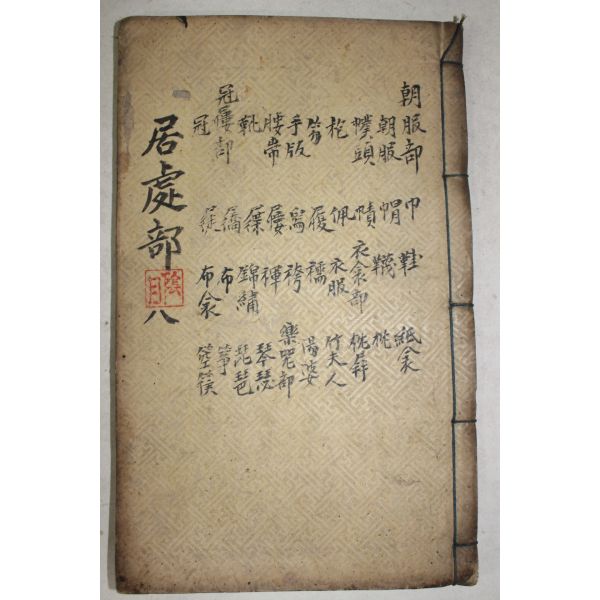 朝服部 巾 鞋 紙衾
朝服 帽 韈 枕
幞頭 幘 衣衾部 枕屛
袍 佩 衣服 竹夫人
笏 履 襦 湯婆
手版 舃 袴 樂器部
腰帶 屨 褌 琴瑟
靴 錦繡 琵琶
冠屨部 屩 布 箏
冠 布衾 箜篌
居處部 八